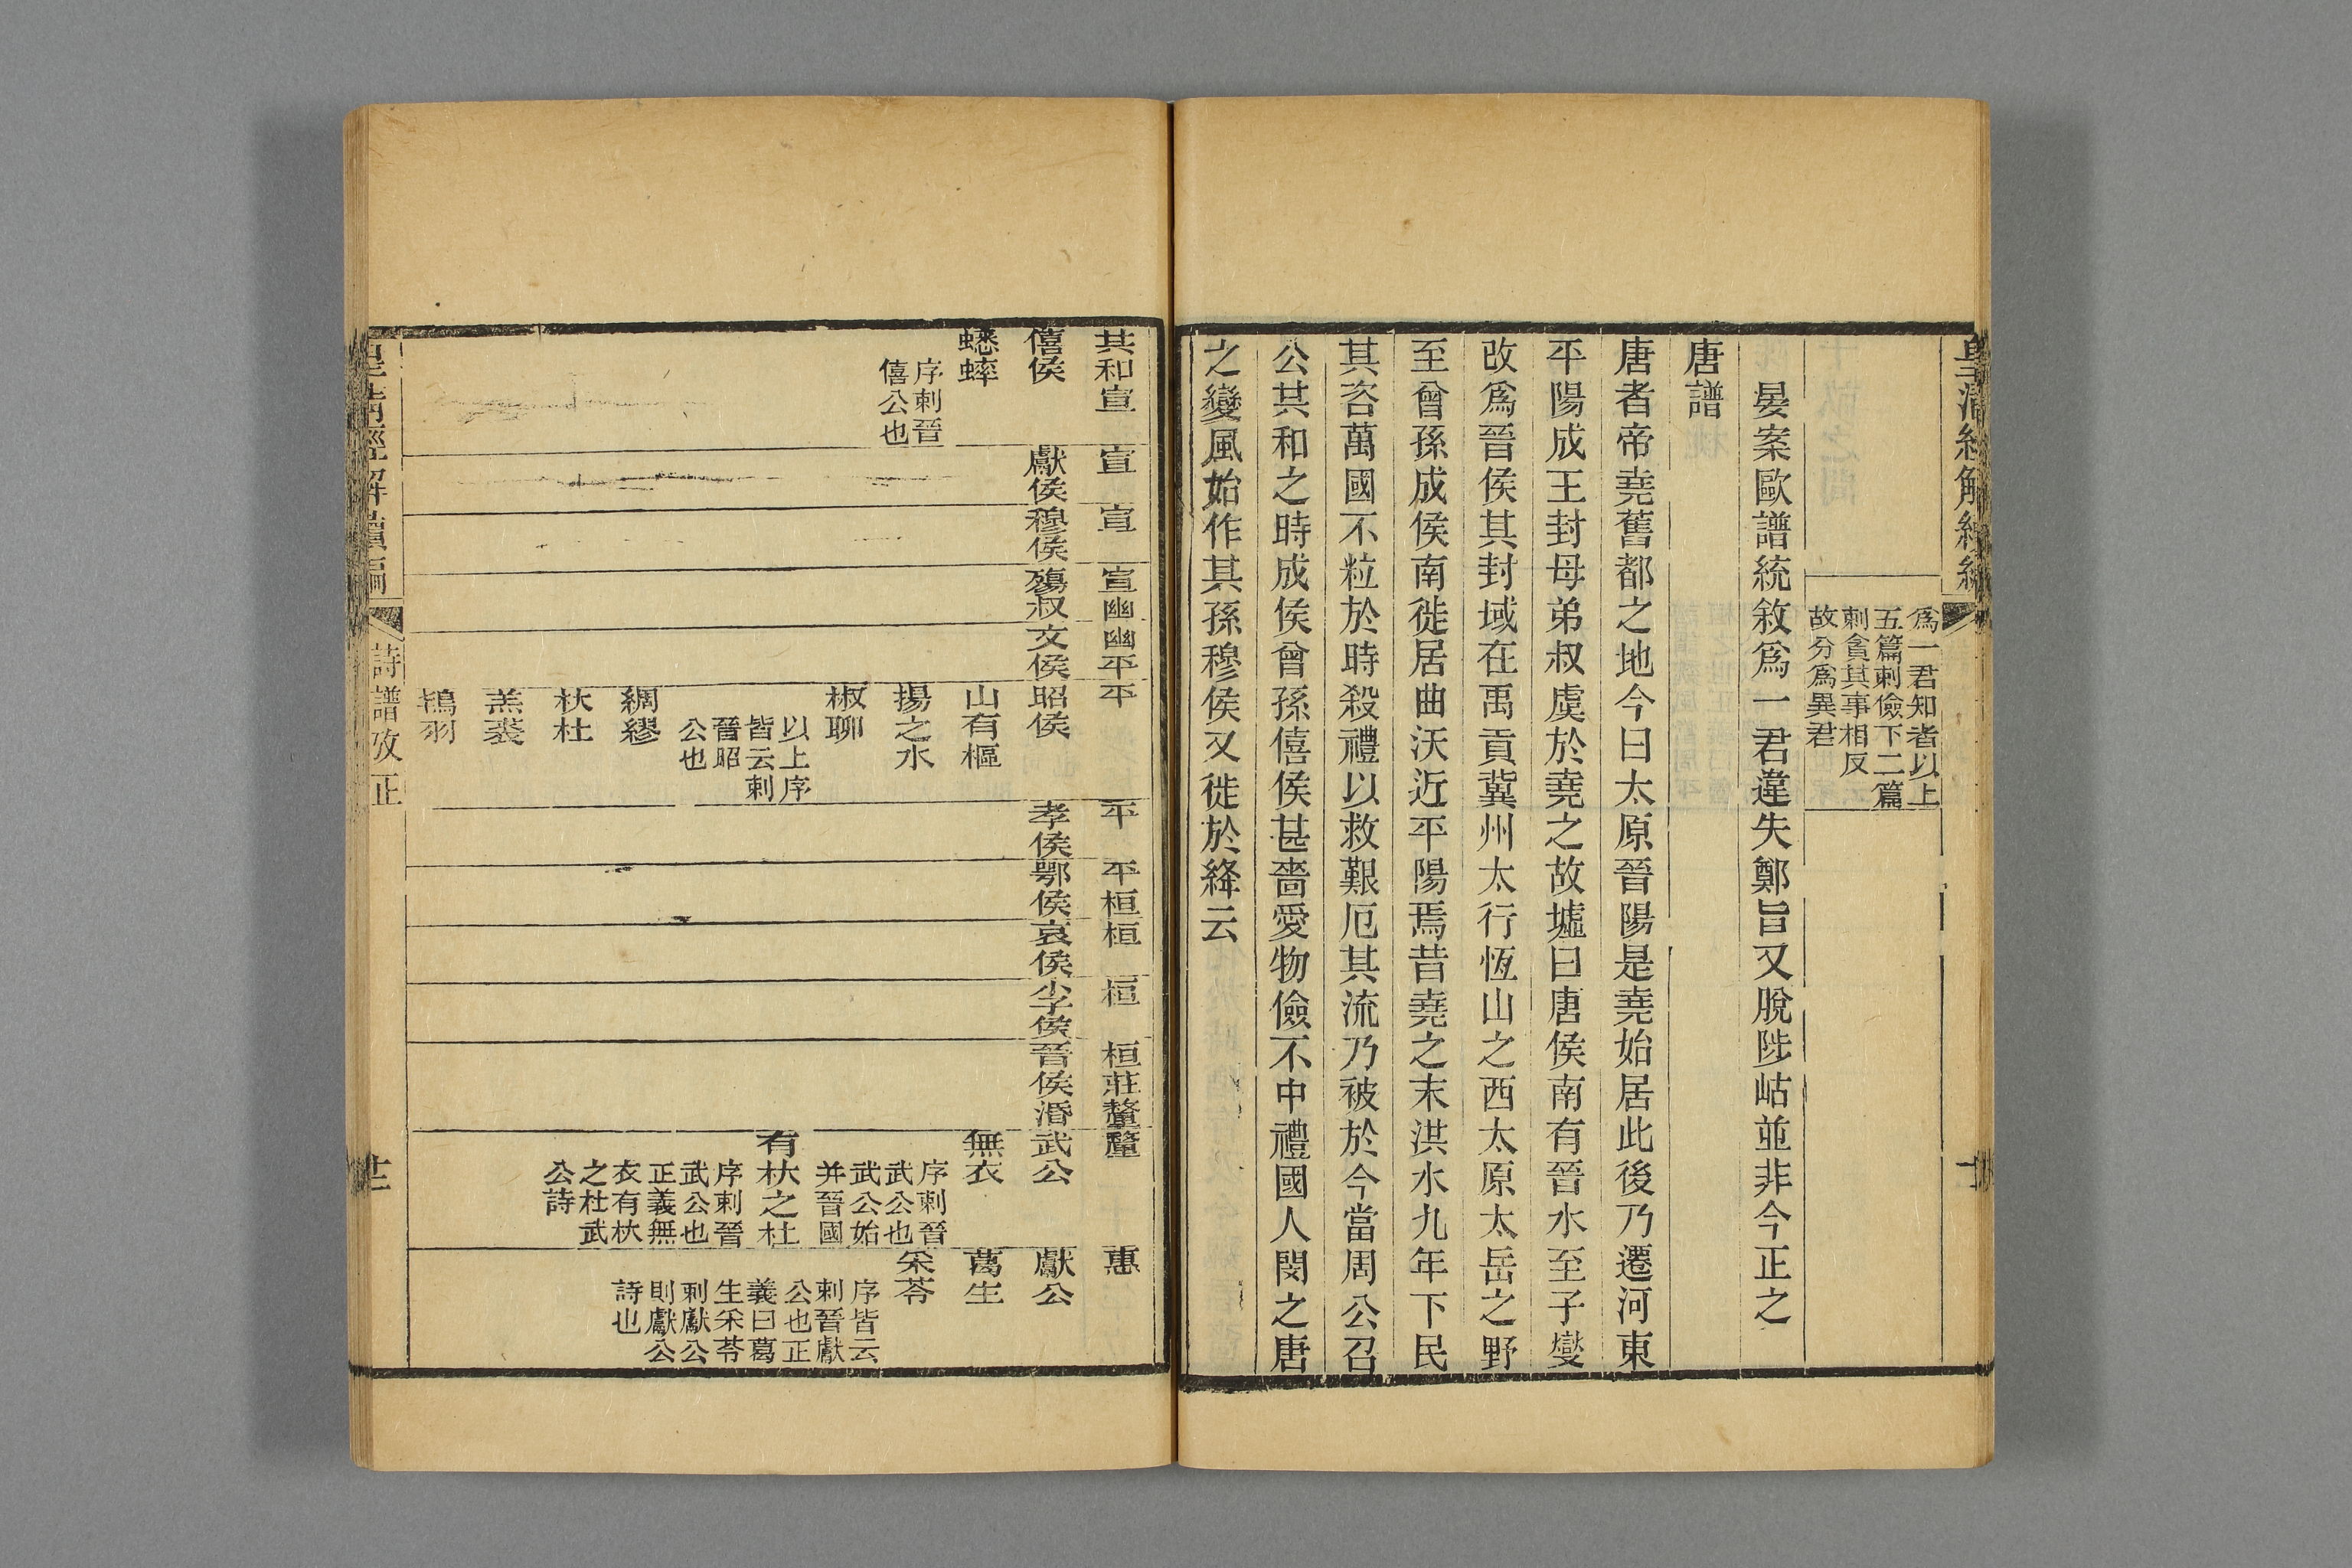 皇清經解續編
為一君知者以上
五篇刺儉下二篇
刺貪其事相反
故分爲異君
晏案歐譜統敘爲一君違失鄭旨又脫陟岵並非今正之
唐譜
唐者帝堯舊都之地今曰太原晉陽是堯始居此後乃遷河東
平陽成王封母弟叔虞於堯之故墟曰唐侯南有晉水至子燮
改爲晉侯其封域在禹貢冀州太行恆山之西太原太岳之野
至曾孫成侯南徙居曲沃近平陽焉昔堯之末洪水九年下民
其咨萬國不粒於時殺禮以救艱厄其流乃被於今當周公召
公共和之時成侯曾孫僖侯甚嗇愛物儉不中禮國人閔之唐
之變風始作其孫穆侯又徙於絳云
共和宣
僖侯
蟋蟀
序刺晉
僖公也
宣
獻侯
宣
穆侯
宣幽
殤叔
幽平
文侯
平
昭侯
山有樞
揚之水
椒聊
以上序
皆云刺
晉昭
公也
綢繆
杕杜
羔裘
鴇羽
平
孝侯
平桓
鄂侯
桓
哀侯
桓
少子侯
桓莊釐
晉侯湣
釐
武公
無衣
序刺晉
武公也
武公始
并晉國
有杕之杜
序刺晉
武公也
正義無
衣有杕
之杜武
公詩
惠
獻公
葛生
采苓
序皆云
刺晉獻
公也正
義曰葛
生采苓
刺獻公
則獻公
詩也
皇清經解續編
詩譜攷正